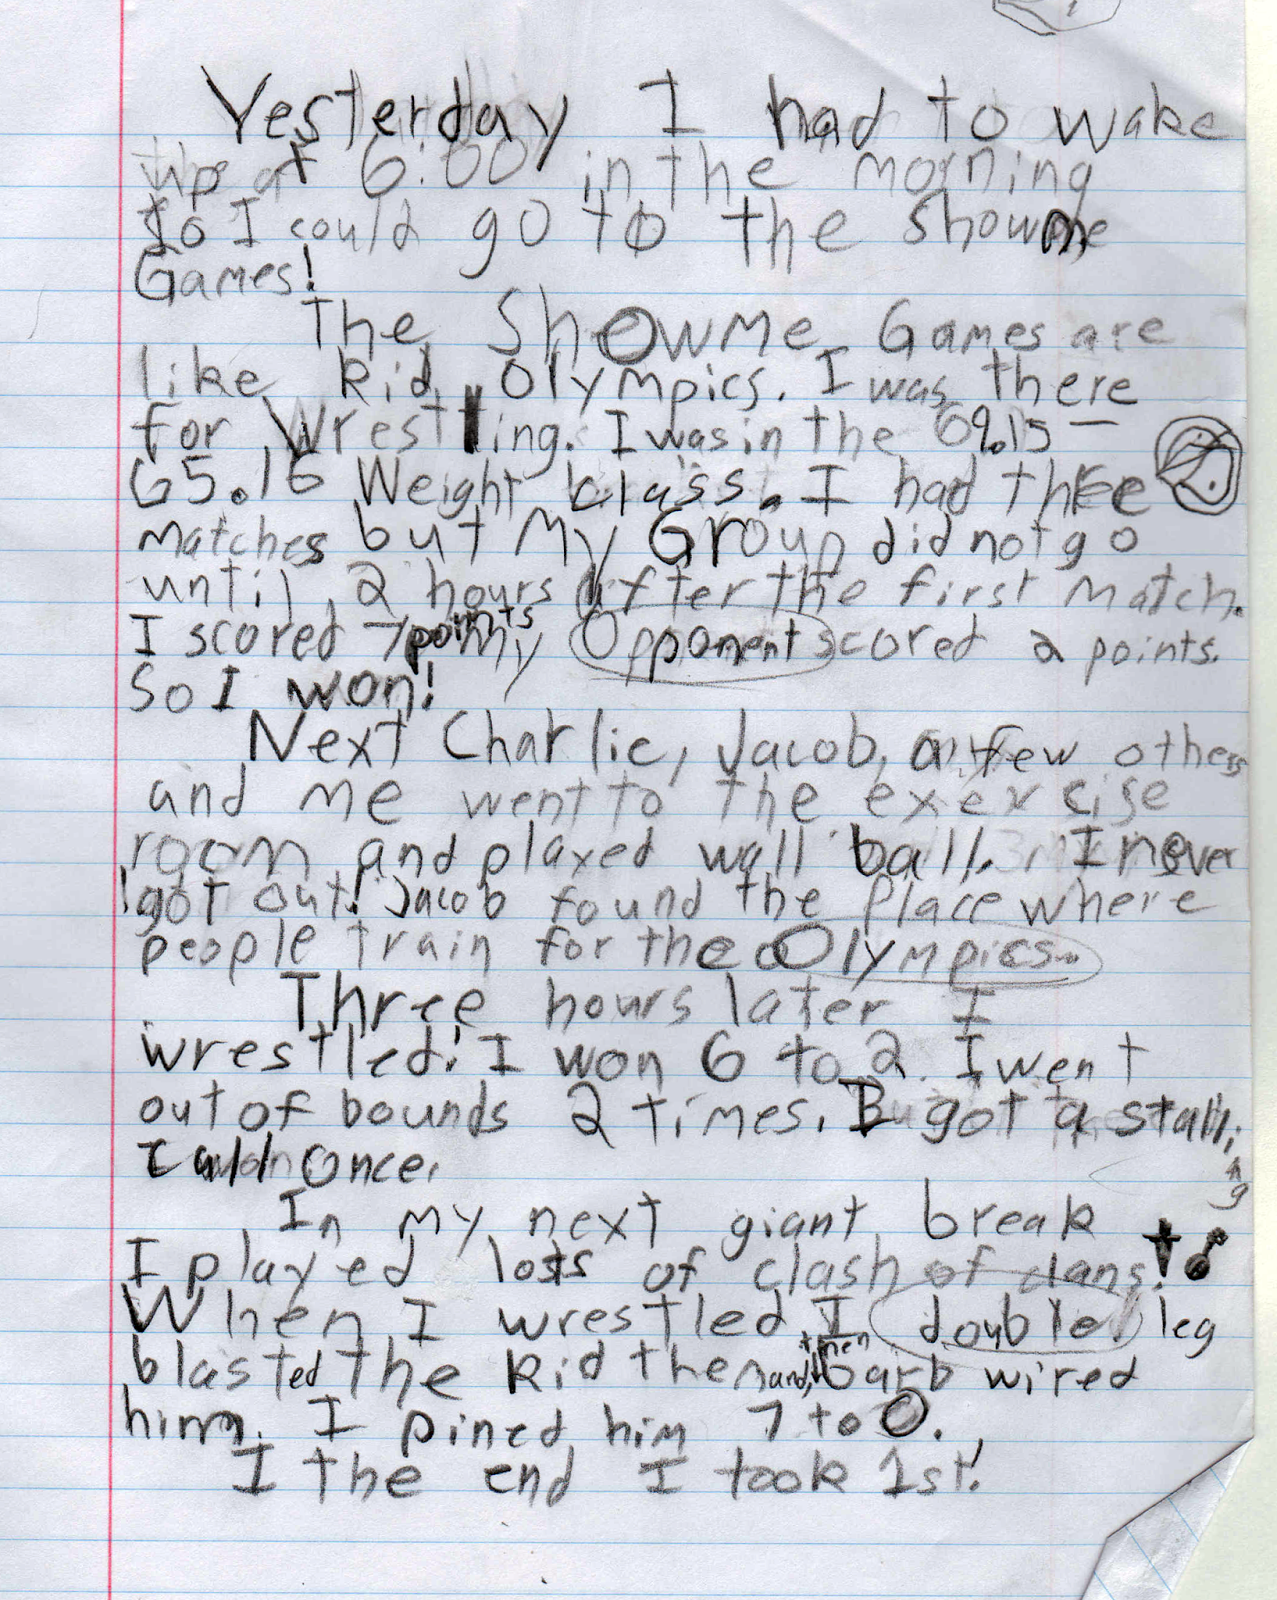 Yesterday I had to wake
up at 6:00 in the morning
so I could go to the Showme
Games!
The Showme Games are
like kid Olympics. I was there
for Wrestling. I was in the
65.16 Weight class. I had three
matches but My Group did not go
until 2 hours after the first match.
I scored 7 points my Opponent scored 2 points.
So I won!
Next Charlie, Jacob, a few others
and me went to the exercise
room and played wall ball. I never
got out! Jacob found the place where
people train for the Olympics.
Three hours later I
wrestled! I won 6 to 2. I went
out of bounds 2 times. I got a stalling
call once.
In my next giant break
I played lots of clash of clans!
When I wrestled I double leg
blasted the kid then and then barb wired
him. I pined him 7 to 0.
I the end I took 1st!